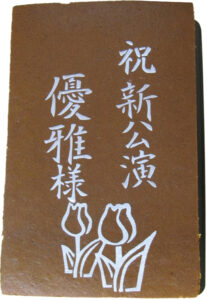 祝新公演
優雅様